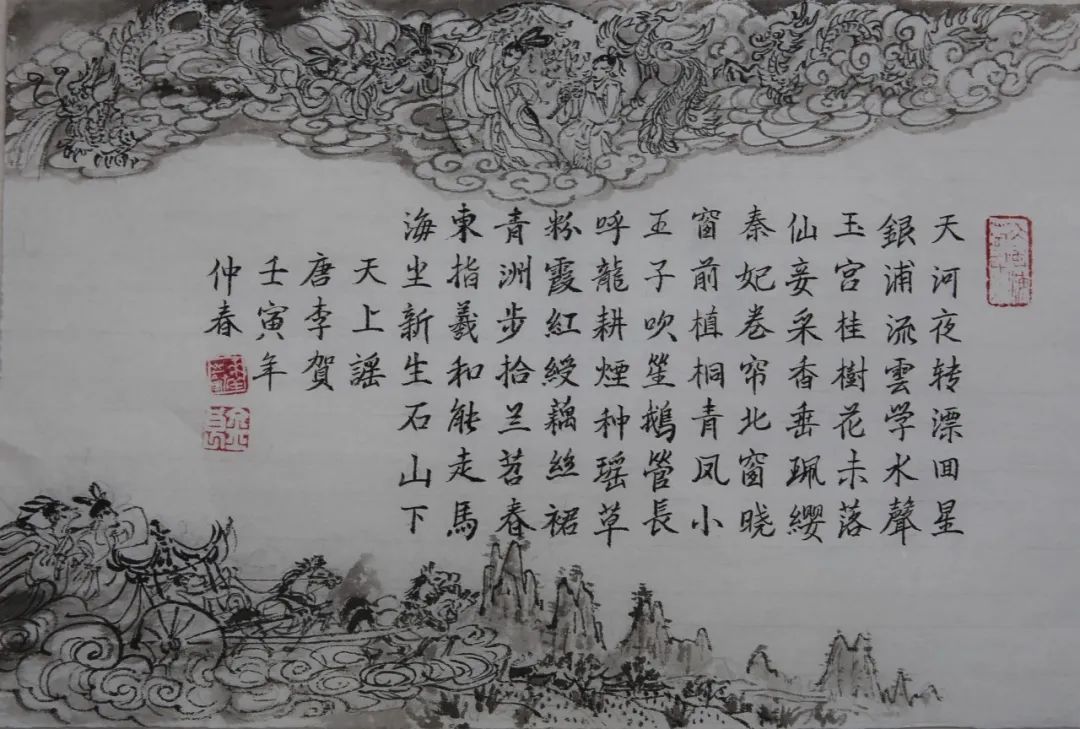 天河夜转漂回星
銀浦流雲学水聲
玉宫桂樹花未落
仙妾采香垂珮纓
秦妃卷帘北窗晓
窗前植桐青凤小
王子吹笙鵝管長
呼龍耕煙种瑶草
粉霞紅綬藕丝裙
青洲步拾兰苕春
東指羲和能走馬
海尘新生石山下
天上謡
唐李贺
壬寅年
仲春